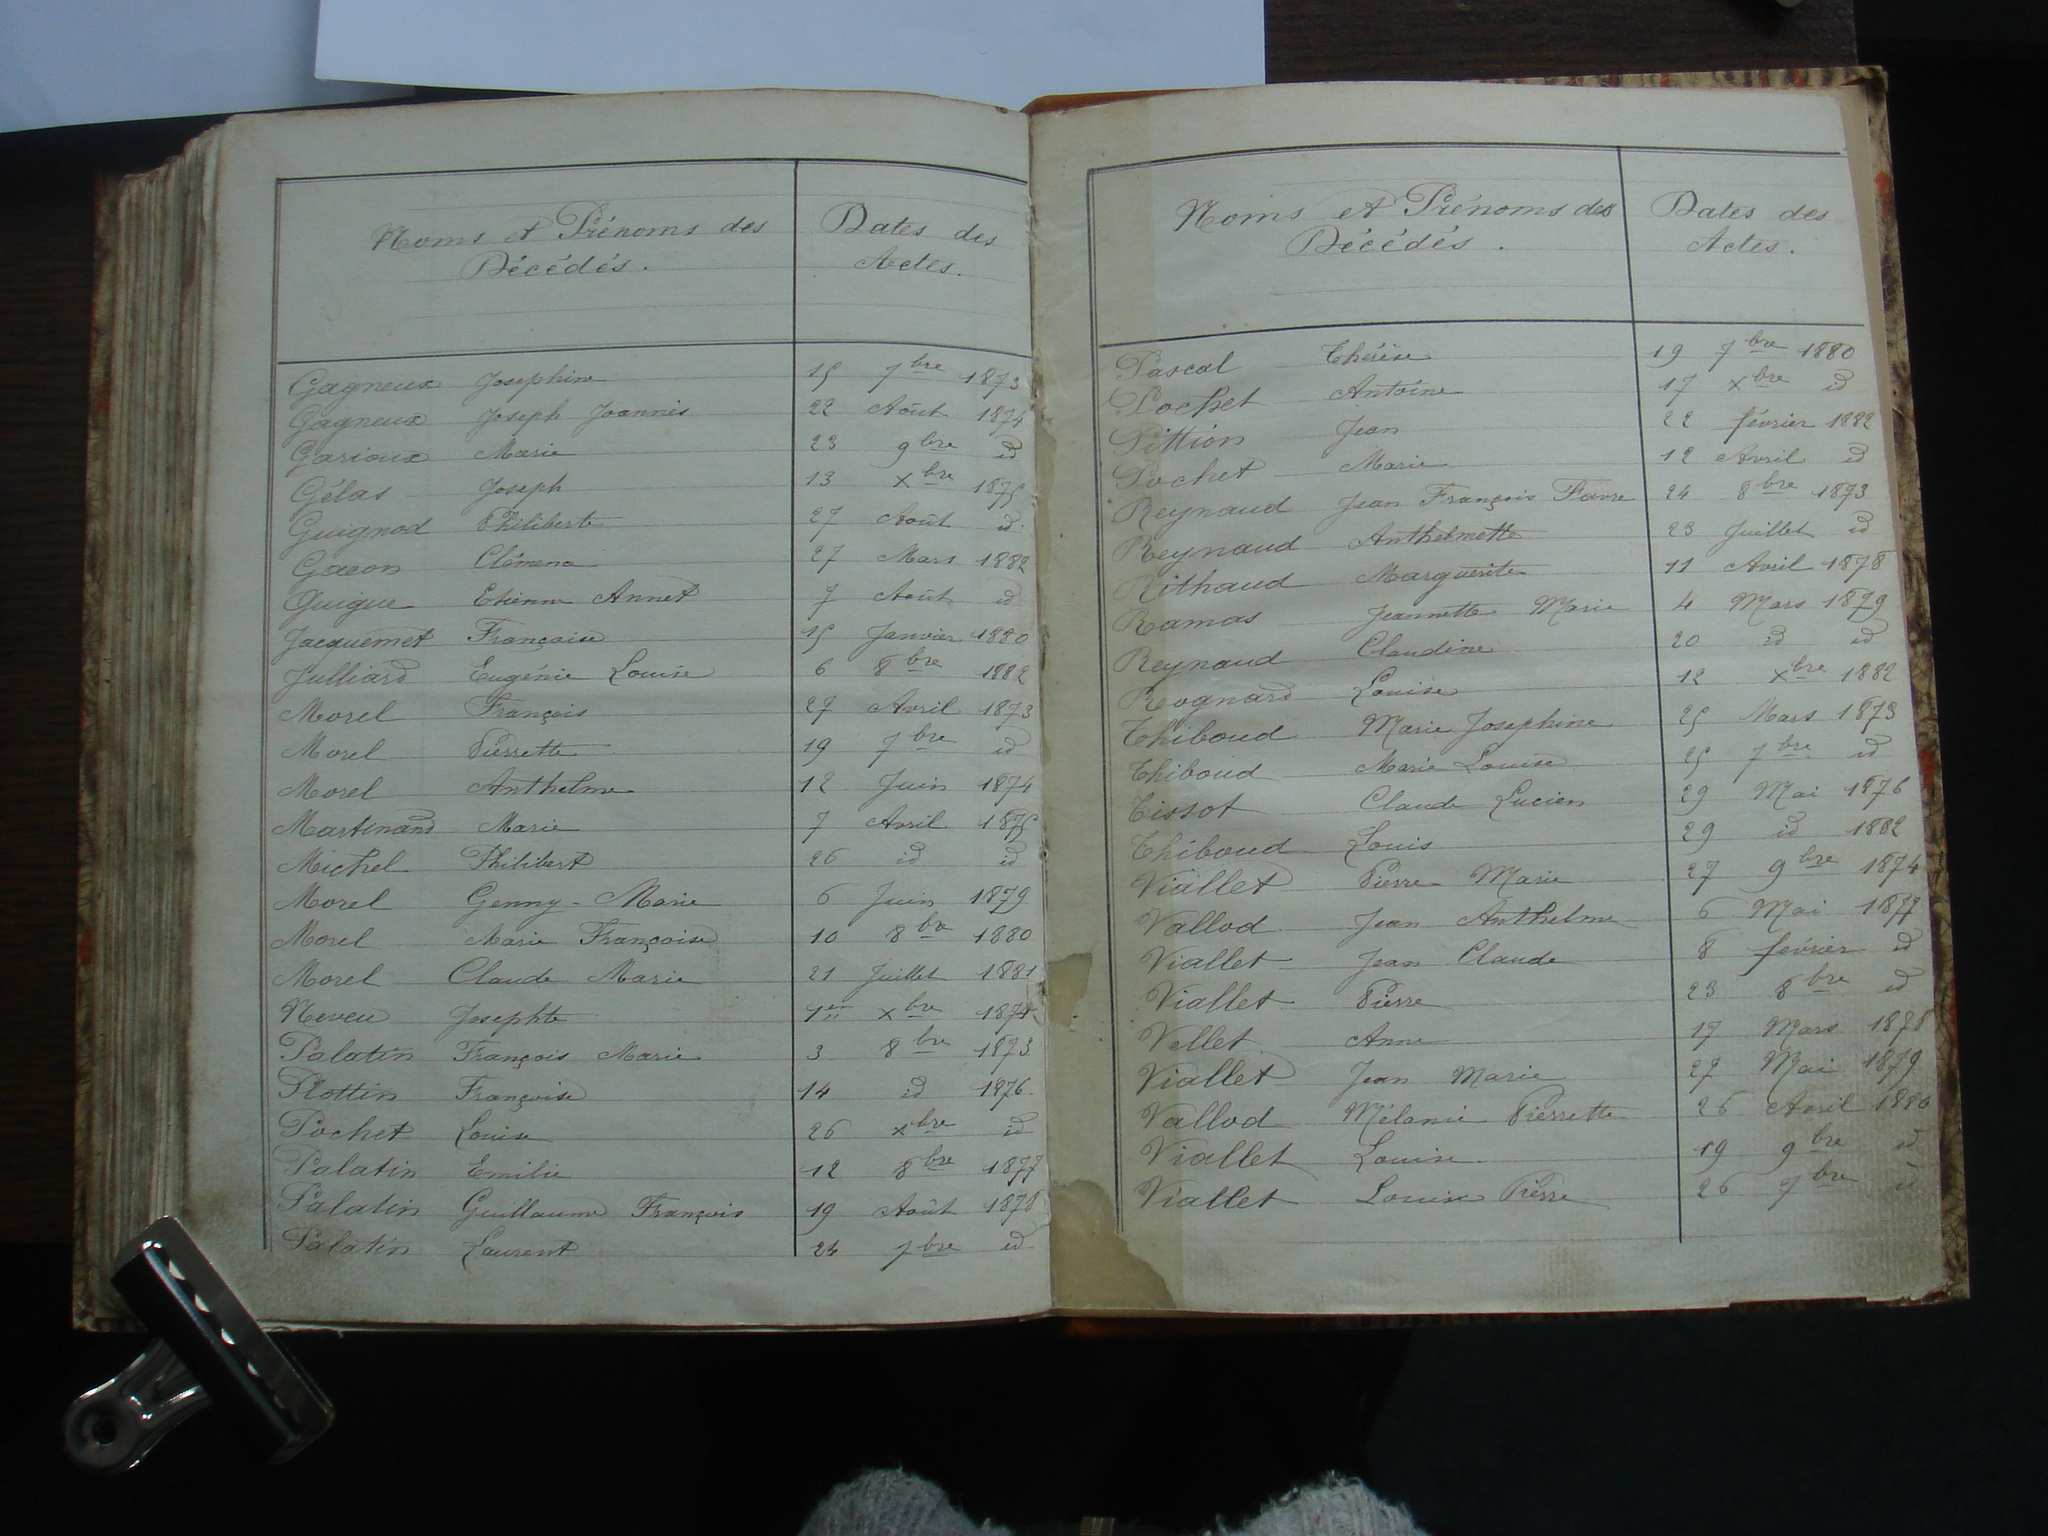 Noms et Prénoms des
Décédés.
Dates des
Actes.
Gagneux Josephine 15 7bre 1873
Gagneux Joseph Joannès 22 Août 1874
Garioux Marie 23 9bre id
Gélas Joseph 13 Xbre 1875
Guignod Philiberte 27 Août id.
Gacon Clémence 27 Mars 1882
Guigue Etienne Annet 7 Août id
Jacquemet Françoise 15 Janvier 1880
Julliard Eugénie Louise 6 8bre 1882
Morel François 27 Avril 1873
Morel Pierrette 19 7bre id
Morel Anthelme 12 Juin 1874
Martinand Marie 7 Avril 1875
Michel Philibert 26 id id
Morel Genny-Marie 6 Juin 1879
Morel Marie Françoise 10 8bre 1880
Morel Claude Marie 21 Juillet 1881
Neveu Josephte 1er Xbre 1874
Palatin François Marie 3 8bre 1873
Plottin Françoise 14 id 1876.
Pochet Louise 26 Xbre id
Palatin Emilie 12 8bre 1877
Palatin Guillaume François 19 Août 1878
Palatin Laurent 24 7bre id
Noms et Prénoms des
Décédés.
Dates des
Actes.
Pascal Thérèse 19 7bre 1880
Pochet Antoine 17 Xbre id
Pittion Jean 22 février 1882
Pochet Marie 12 Avril id
Reynaud Jean François Favre 24 8bre 1873
Reynaud Anthelmette 23 Juillet id
Rithaud Marguerite 11 Avril 1878
Ramas Jeannette Marie 4 Mars 1879
Reynaud Claudine 20 id id
Rognard Louise 12 Xbre 1882
Thiboud Marie Josephine 25 Mars 1873
Thiboud Marie Louise 25 7bre id
Tissot Claude Lucien 29 Mai 1876
Thiboud Louis 29 id 1882
Viallet Pierre Marie 27 9bre 1874
Vallod Jean Anthelme 6 Mai 1877
Viallet Jean Claude 8 février id
Viallet Pierre 23 8bre id
Vellet Anne 17 Mars 1878
Viallet Jean Marie 27 Mai 1879
Vallod Mélanie Pierrette 26 Avril 1880
Viallet Louise 19 9bre id
Viallet Louis Pierre 26 7bre id